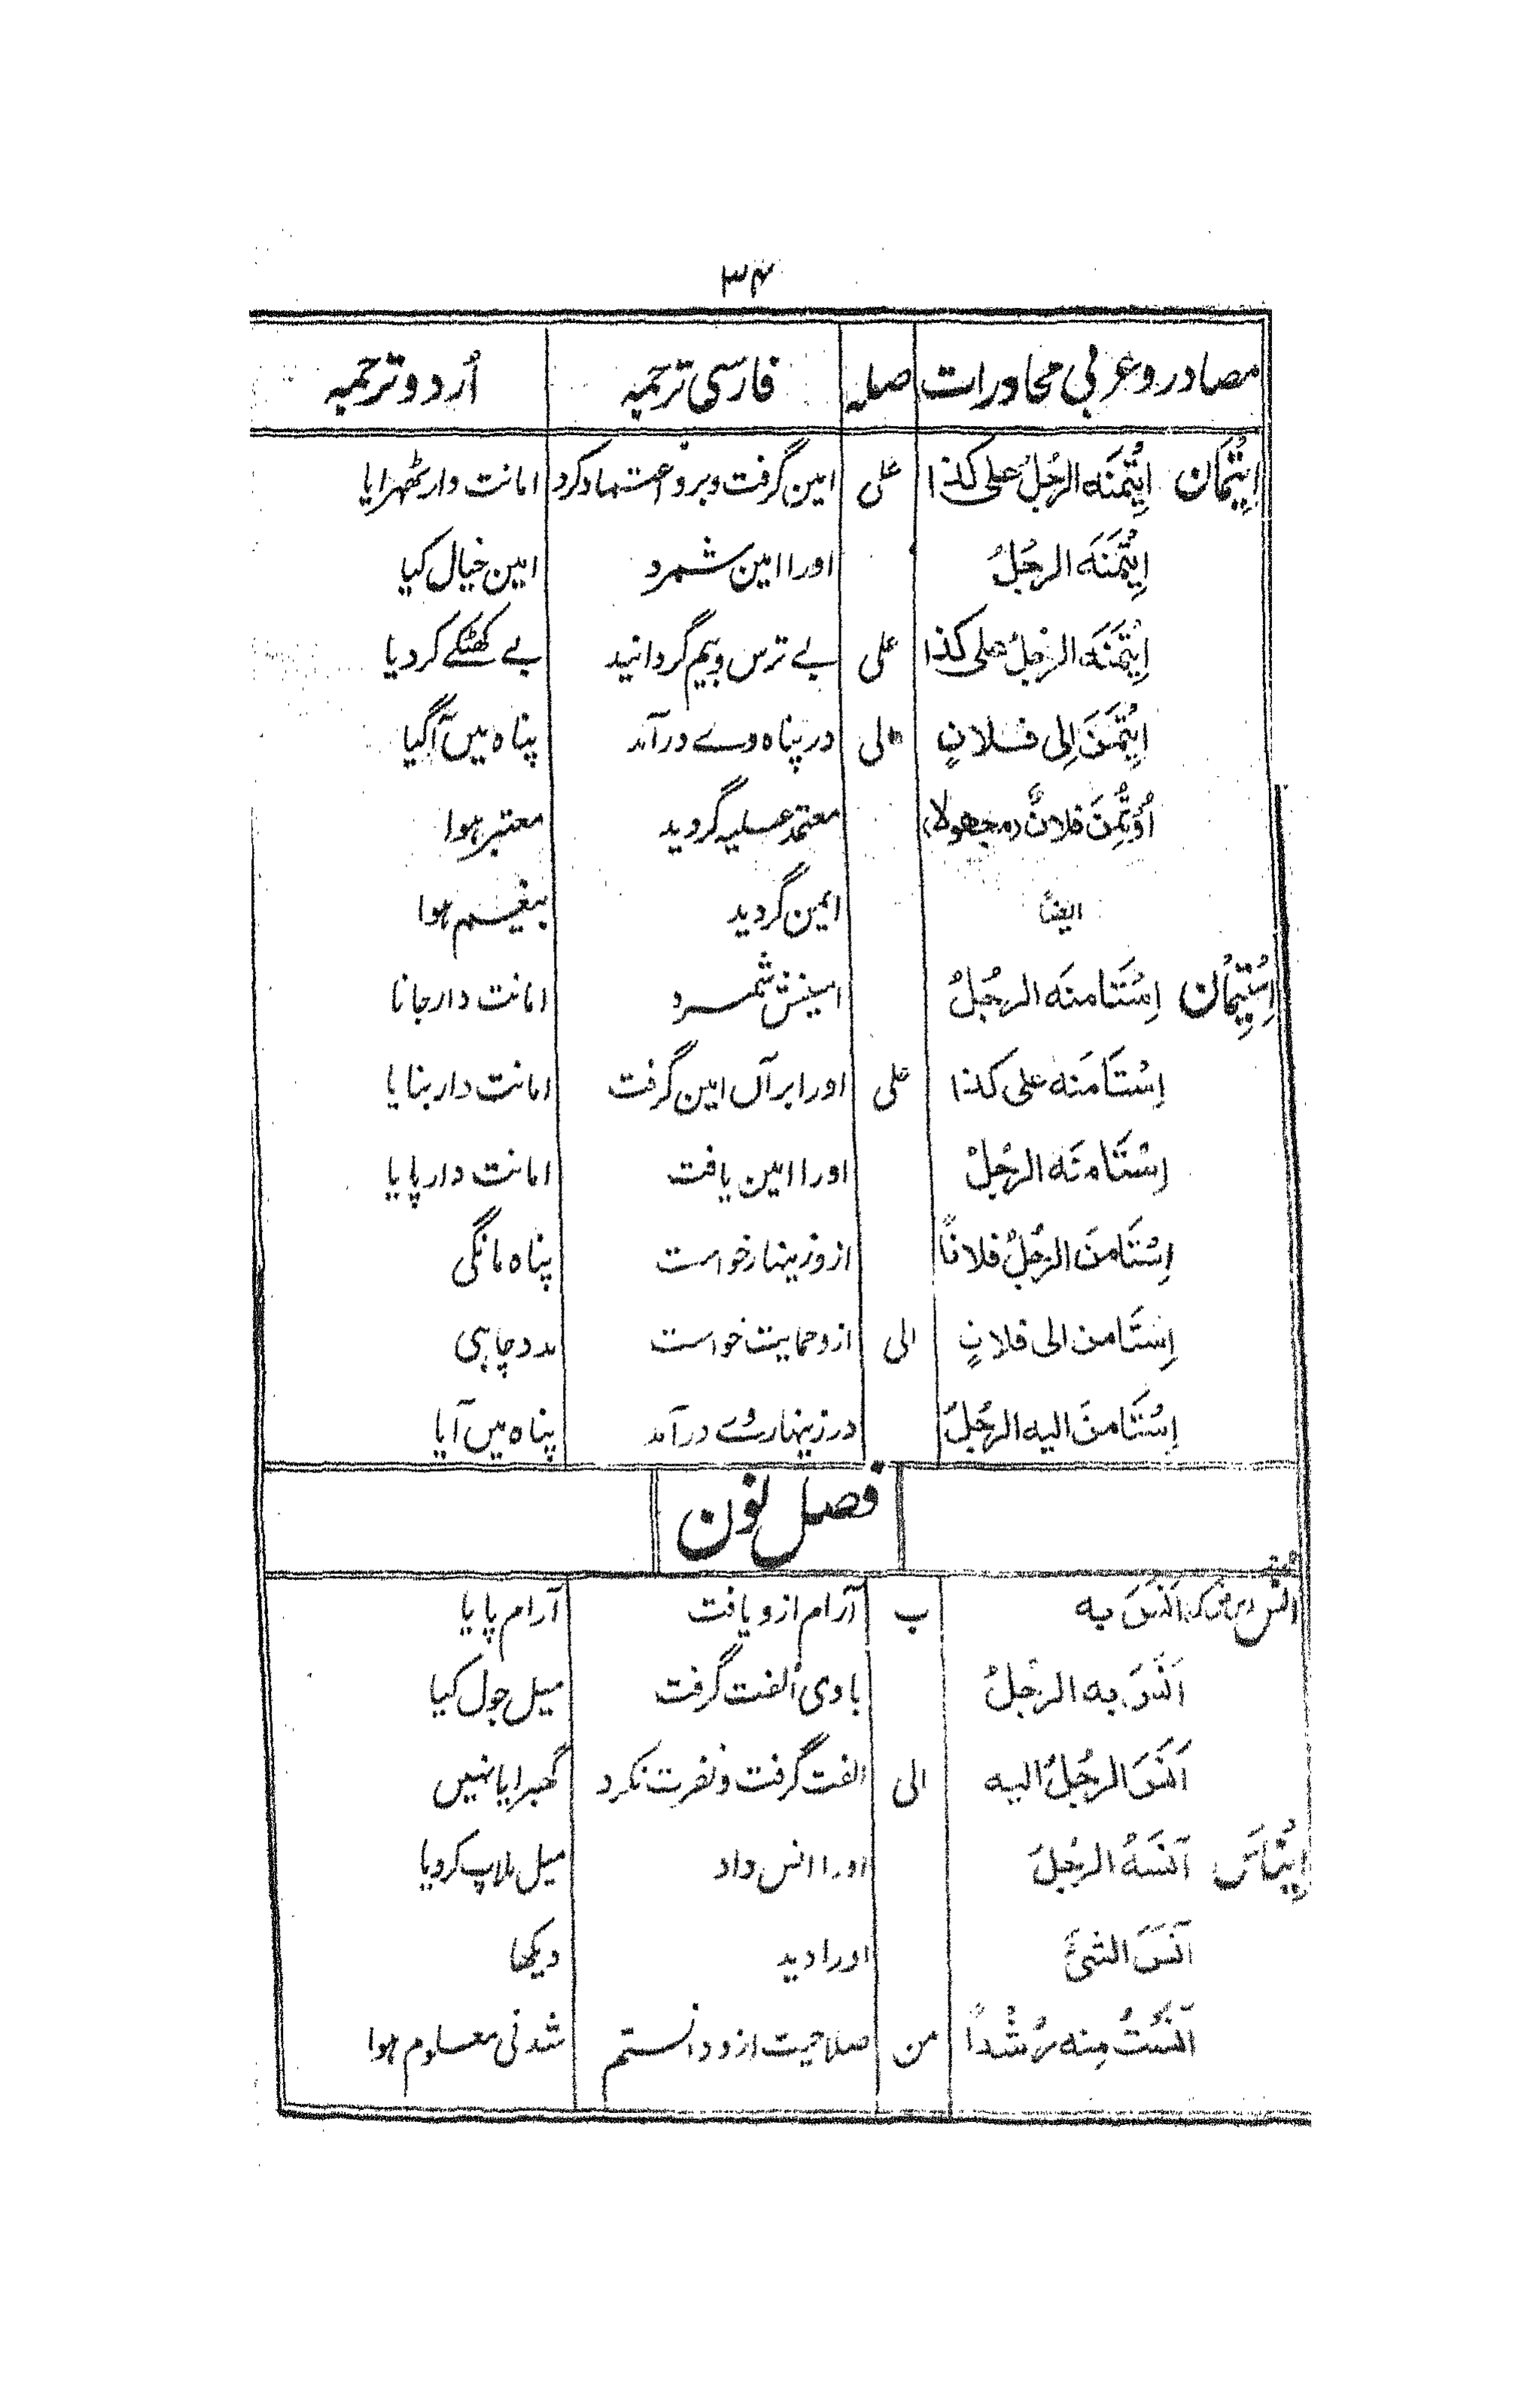 ۳۴
مصادر و عربی محاورات صلہ فارسی ترجمہ اُردو ترجمہ
اِیْتُمَان اِیْتَمَنَه الرجُلُ علی کذا علی امین گرفت و برو اعتماد کرد امانت دار ٹھہرایا
اِیْتَمَنَه الرجُلُ اورا امین شمرد امین خیال کیا
اِیْتَمَنَه الرجُلُ علی کذا علی بے ترس و بیم گردانید بے کھٹکے کر دیا
اِیْتَمَنَ اِلی فلانٍ الی در پناہ وے درآمد پناہ میں آگیا
اُوْتُمِنَ فلانٌ (مجهولا) معتمد علیہ گردید معتبر ہوا
ایضاً ایمن گردید بیغم ہوا
اِسْتِیْمَان اِسْتَامنَه الرجُلُ امینش شمرد امانت دار جانا
اِسْتَامَنه علی کذا علی اورا برآں امین گرفت امانت دار بنایا
اِسْتَامنَه الرجُلُ اورا امین یافت امانت دار پایا
اِسْتَامنَ الرجُلُ فلاناً ازو زینہار خواست پناہ مانگی
اِسْتَامن الی فلانٍ الی ازو حمایت خواست مدد چاہی
اِسْتَامنَ الیه الرجُلُ در زینہار وے درآمد پناہ میں آیا
فصل نون
اُنْس اَنَسَ به ب آرام ازو یافت آرام پایا
اَنَسَ به الرجُلُ باوی اُلفت گرفت میل جول کیا
اَنَسَ الرجُلُ الیه الی الفت گرفت و نفرت نکرد گھبرایا نہیں
اِیْنَاس آنَسَهُ الرجُلُ اورا انس داد میل ملاپ کردیا
آنَسَ الشیَٔ اورا دید دیکھا
آنَسْتُ مِنه رُشْداً من صلاحیت ازو دانستم شدنی معلوم ہوا